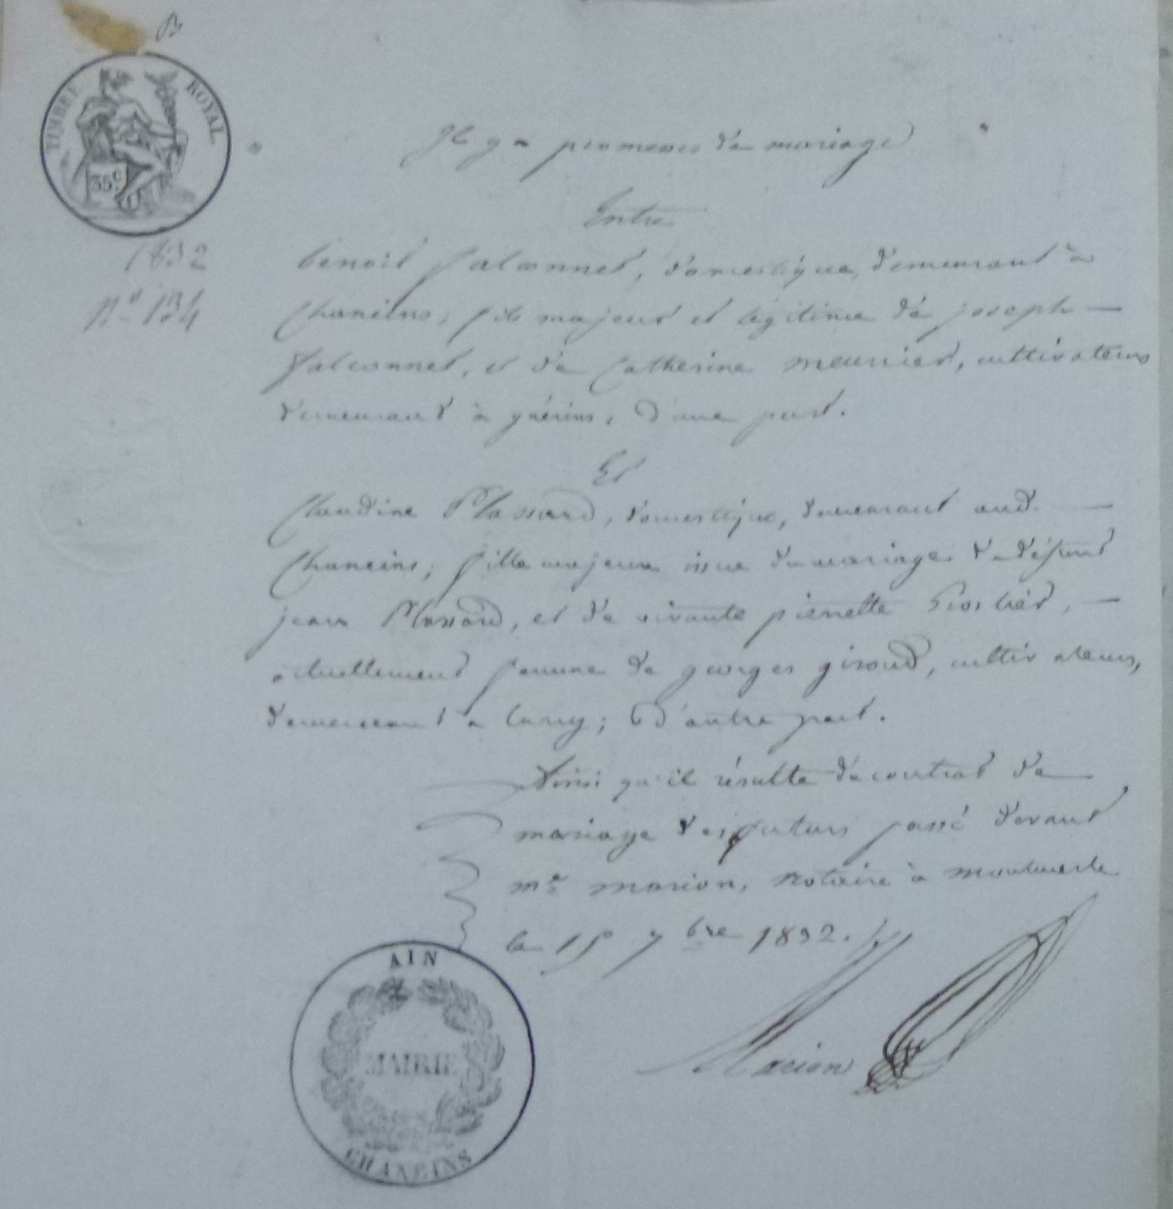 B
TIMBRE ROYAL
35 c
Il y a promesses de mariage
Entre
1832
N° 134
benoit falconnet, domestique, demeurant à
Chaneins, fils majeur et légitime de joseph
falconnet, et de Catherine meunier, cultivateurs
demeurant à guérins, d'une part.
Et
Claudine Plassard, domestique, demeurant aud.
Chaneins, fille majeure issue du mariage de défunt
jean Plassard, et de vivante pierrette
actuellement femme de georges giroud, cultivateurs,
demeurant à lurcy; d'autre part.
Ainsi qu'il résulte du contrat de
mariage des futurs passé devant
me marion, notaire à montmerle
le 15 7bre 1832.
Marion
AIN
MAIRIE
CHANEINS